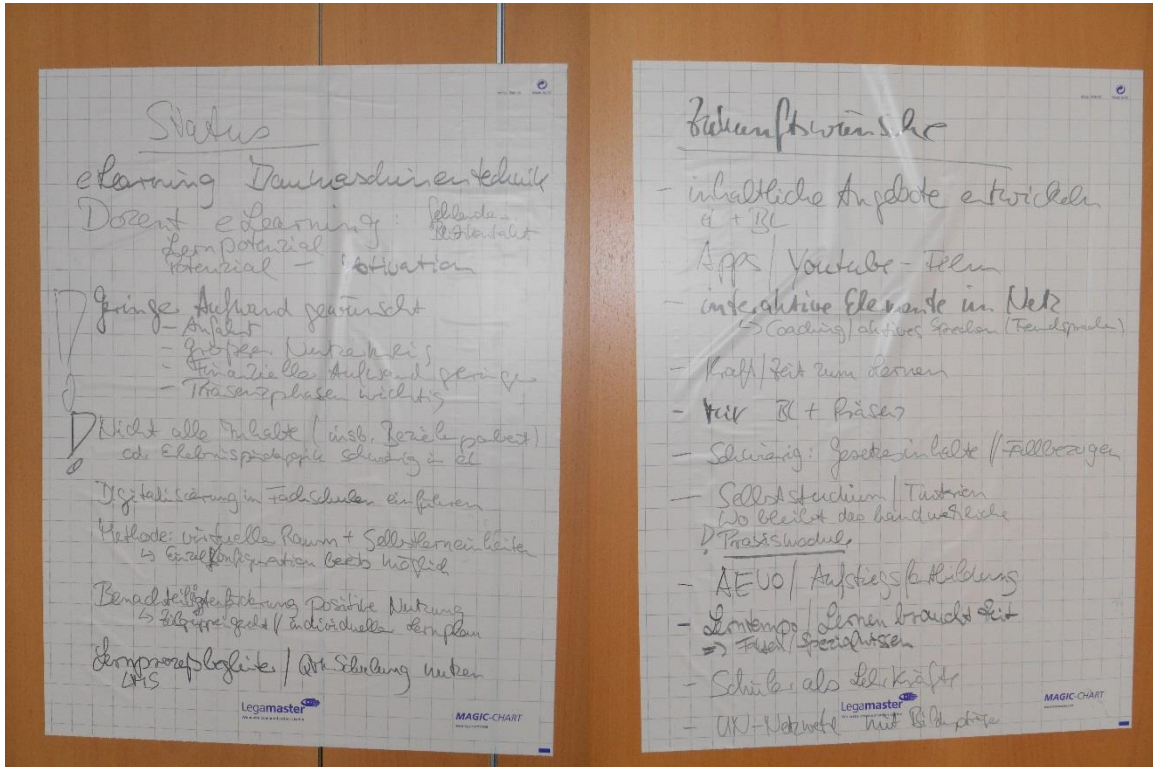 Status
eLearning Baumaschinentechnik
Dozent eLearning: fehlende
Blickkontakt
Lernpotenzial
Potenzial – Motivation
Geringe Aufwand gewünscht
– Anfahrt
– großer Nutzerkreis
– Finanzielle Aufwand geringe
– Präsenzphasen wichtig
Nicht alle Inhalte (insb. Beziehungsarbeit)
od. Erlebnispädagogik schwierig in eL
Digitalisierung in Fachschulen einführen
Methode: virtuelle Raum + Selbstlerneinheiten
↳ Einzelkonfiguration bereits möglich
Benachteiligtenförderung positive Nutzung
↳ Zielgruppengerecht / individuelle Lernplan
Lernprozeßbegleiter / Schulung nutzen
LMS
Legamaster
MAGIC-CHART
Zukunftswünsche
– inhaltliche Angebote entwickeln
+ BL
Apps / Youtube-Film
– interaktive Elemente im Netz
↳ Coaching / aktives Sprechen (Fremdsprachen)
– Kraft/Zeit zum Lernen
– BL + Präsenz
– Schwierig: Gesetzesinhalte // Fallbezogen
– Selbststudium / Tutorien
Wo bleibt das handwerkliche
! Praxismodule
– AEVO / Aufstiegsfortbildung
– Lerntempo / Lernen braucht Zeit
=> / Spezialwissen
– Schüler als Lehrkräfte
Legamaster
MAGIC-CHART
– -Netzwerk mit